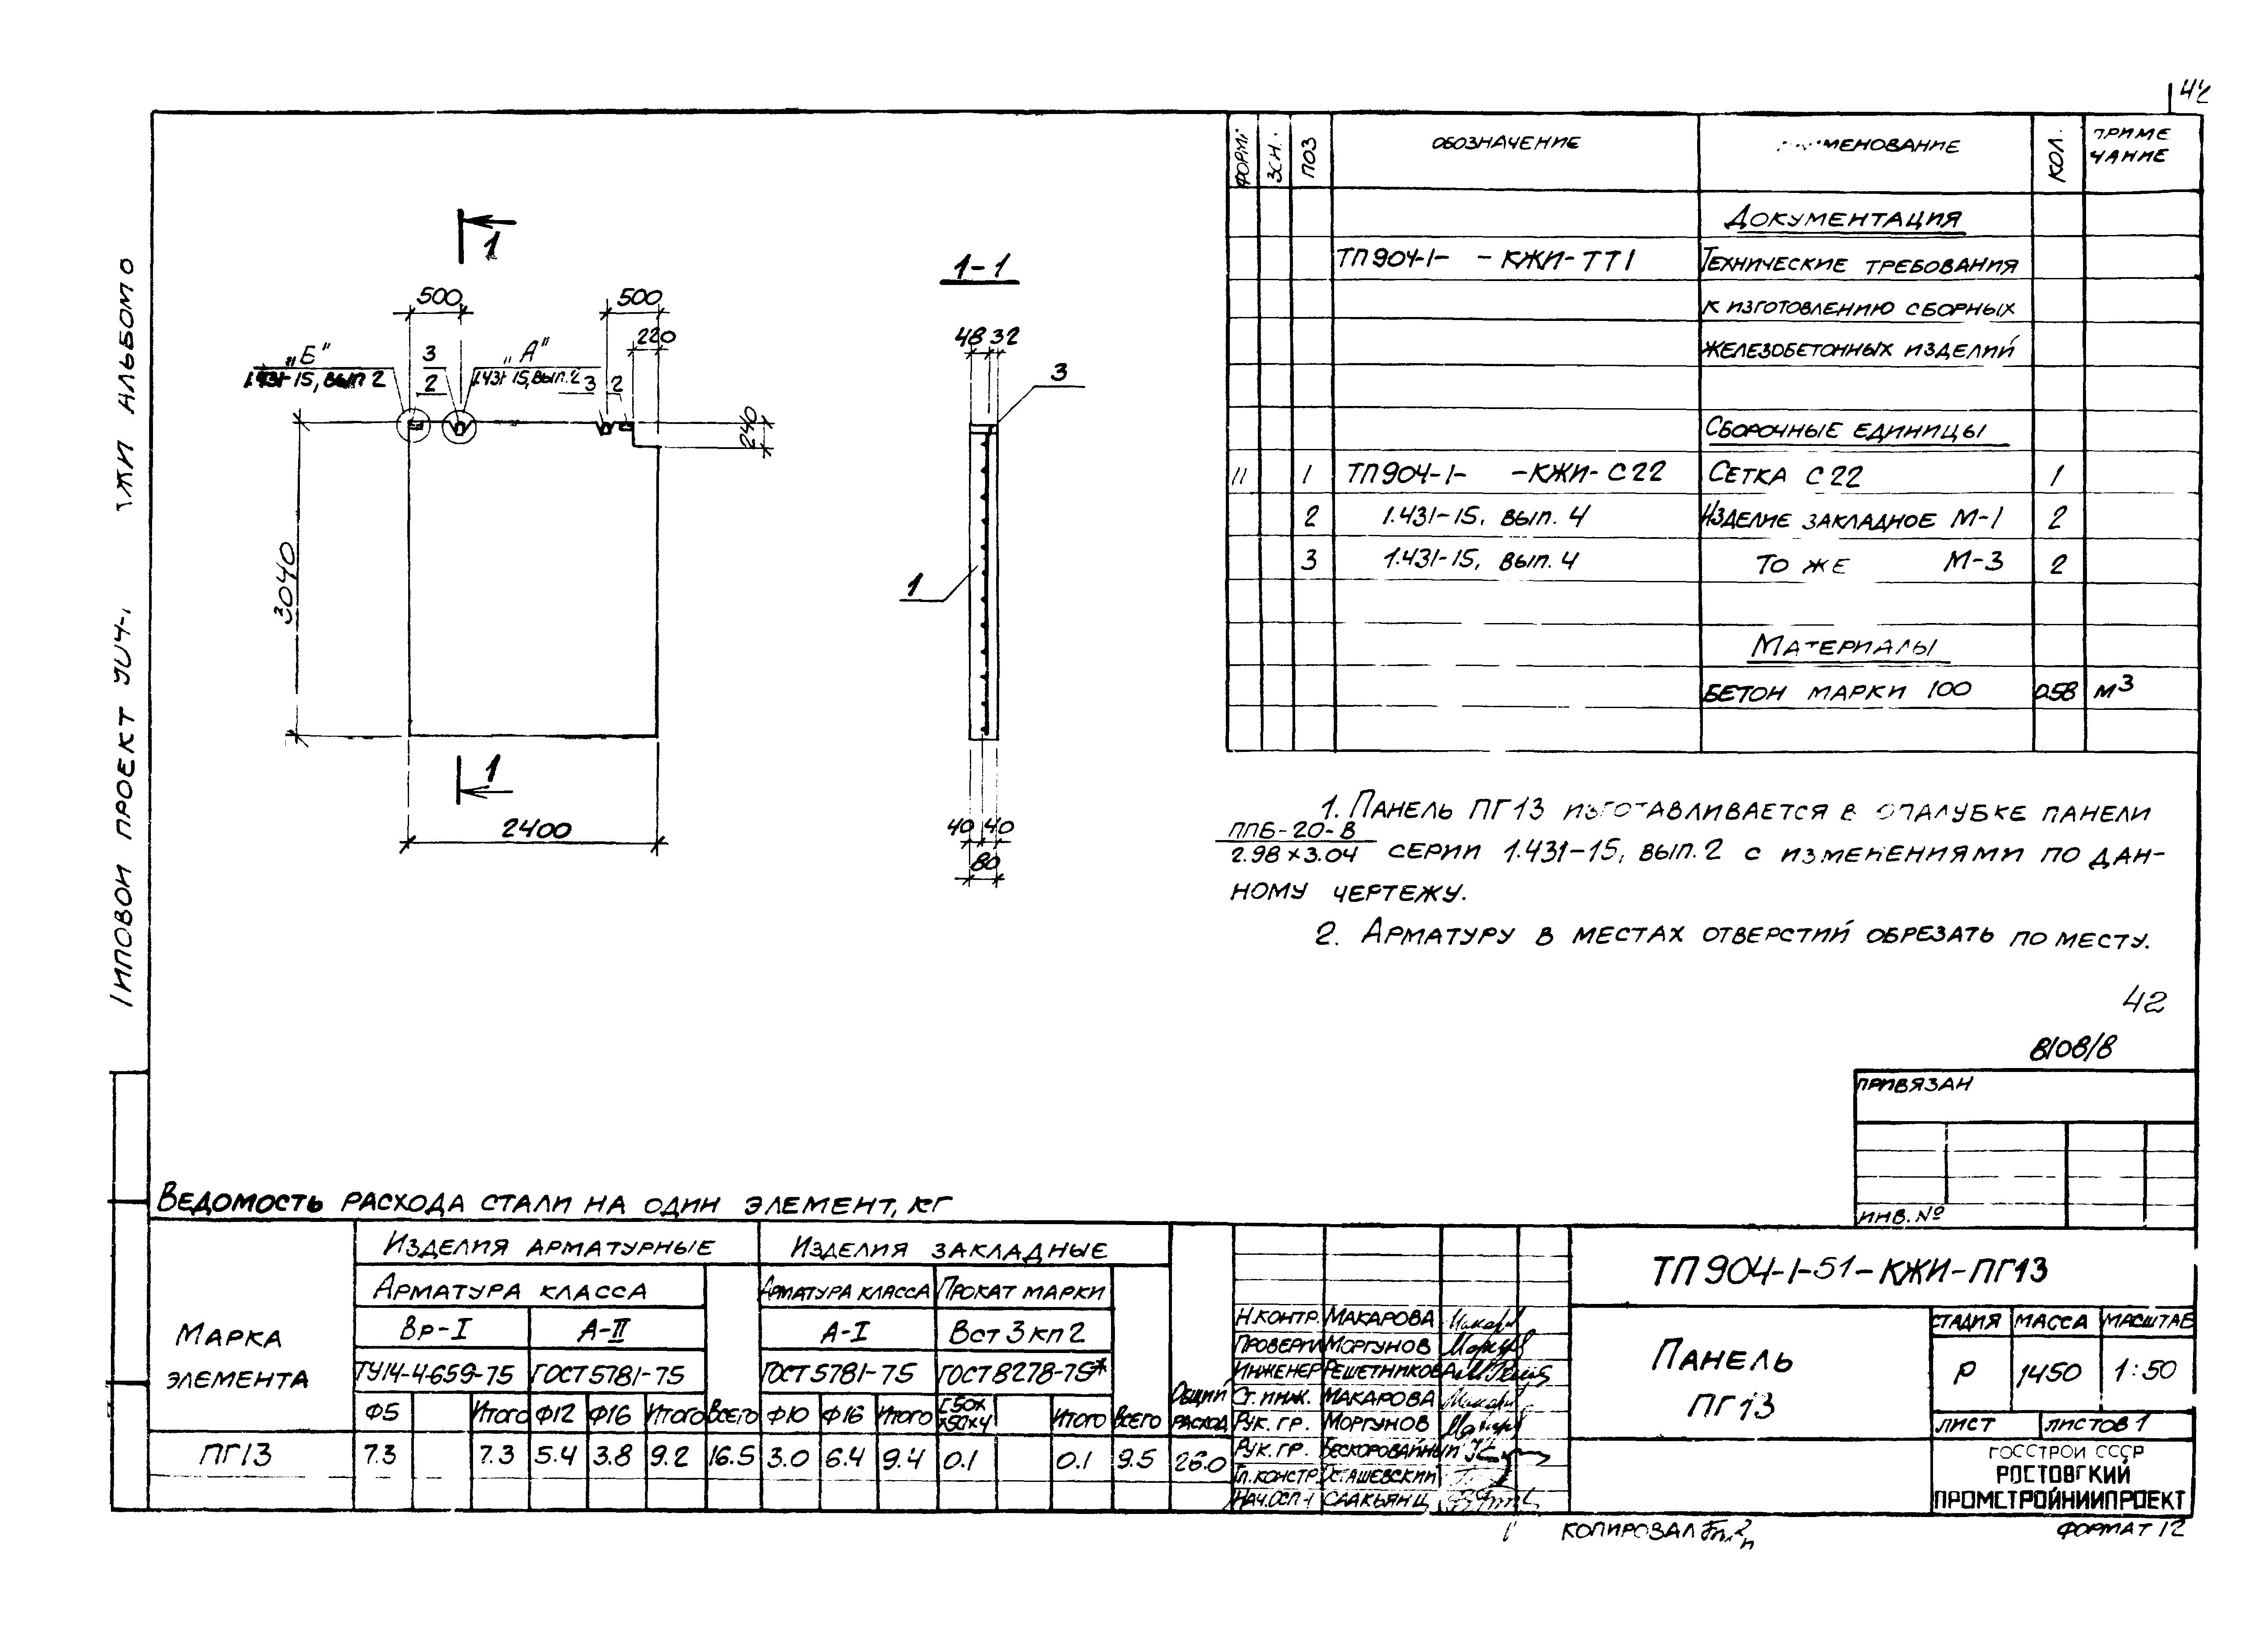 42
ФОРМ.
ЗОН.
ПОЗ
ОБОЗНАЧЕНИЕ
КОЛ.
ПРИМЕ
ЧАНИЕ
ДОКУМЕНТАЦИЯ
ТП904-1- -КЖИ-ТТ1 ТЕХНИЧЕСКИЕ ТРЕБОВАНИЯ
К ИЗГОТОВЛЕНИЮ СБОРНЫХ
ЖЕЛЕЗОБЕТОННЫХ ИЗДЕЛИЙ
СБОРОЧНЫЕ ЕДИНИЦЫ
11 1 ТП904-1- -КЖИ-С22 СЕТКА С22 1
2 1.431-15, ВЫП. 4 ИЗДЕЛИЕ ЗАКЛАДНОЕ М-1 2
3 1.431-15, ВЫП. 4 ТО ЖЕ М-3 2
МАТЕРИАЛЫ
БЕТОН МАРКИ 100 0.58 М3
1
1-1
500 500
220
48 32
„Б" 3 „А"
1.431-15, ВЫП 2 2 1.431-15, ВЫП.2 3 2
3
240
3040
1
1
2400
40 40
80
1. ПАНЕЛЬ ПГ13 ИЗГОТАВЛИВАЕТСЯ В ОПАЛУБКЕ ПАНЕЛИ
ППБ-20-В
2.98×3.04 СЕРИИ 1.431-15, ВЫП. 2 С ИЗМЕНЕНИЯМИ ПО ДАН-
НОМУ ЧЕРТЕЖУ.
2. АРМАТУРУ В МЕСТАХ ОТВЕРСТИЙ ОБРЕЗАТЬ ПО МЕСТУ.
42
8108/8
ПРИВЯЗАН
ИНВ. №
ПРОЕКТ
АЛЬБОМ
ВЕДОМОСТЬ РАСХОДА СТАЛИ НА ОДИН ЭЛЕМЕНТ, КГ
МАРКА
ЭЛЕМЕНТА
ИЗДЕЛИЯ АРМАТУРНЫЕ ИЗДЕЛИЯ ЗАКЛАДНЫЕ
АРМАТУРА КЛАССА АРМАТУРА КЛАССА ПРОКАТ МАРКИ
Вр-I А-II А-I Вст3кп2
ТУ14-4-659-75 ГОСТ5781-75 ГОСТ5781-75 ГОСТ8278-75*
ОБЩИЙ
РАСХОД
Ф5 Итого Ф12 Ф16 Итого Всего Ф10 Ф16 Итого [50х
х50х4 Итого Всего
ПГ13 7.3 7.3 5.4 3.8 9.2 16.5 3.0 6.4 9.4 0.1 0.1 9.5 26.0
Н.КОНТР. МАКАРОВА
ПРОВЕРИЛ МОРГУНОВ
ИНЖЕНЕР РЕШЕТНИКОВА
СТ. ИНЖ. МАКАРОВА
РУК. ГР. МОРГУНОВ
РУК. ГР. БЕСКОРОВАЙНЫЙ
ГЛ.КОНСТР. ОСТАШЕВСКИЙ
НАЧ.ОСП-1 СААКЬЯНЦ
ТП904-1-51-КЖИ-ПГ13
ПАНЕЛЬ
ПГ13
СТАДИЯ МАССА МАСШТАБ
Р 1450 1:50
ЛИСТ ЛИСТОВ 1
ГОССТРОЙ СССР
РОСТОВСКИЙ
ПРОМСТРОЙНИИПРОЕКТ
КОПИРОВАЛ
ФОРМАТ 12